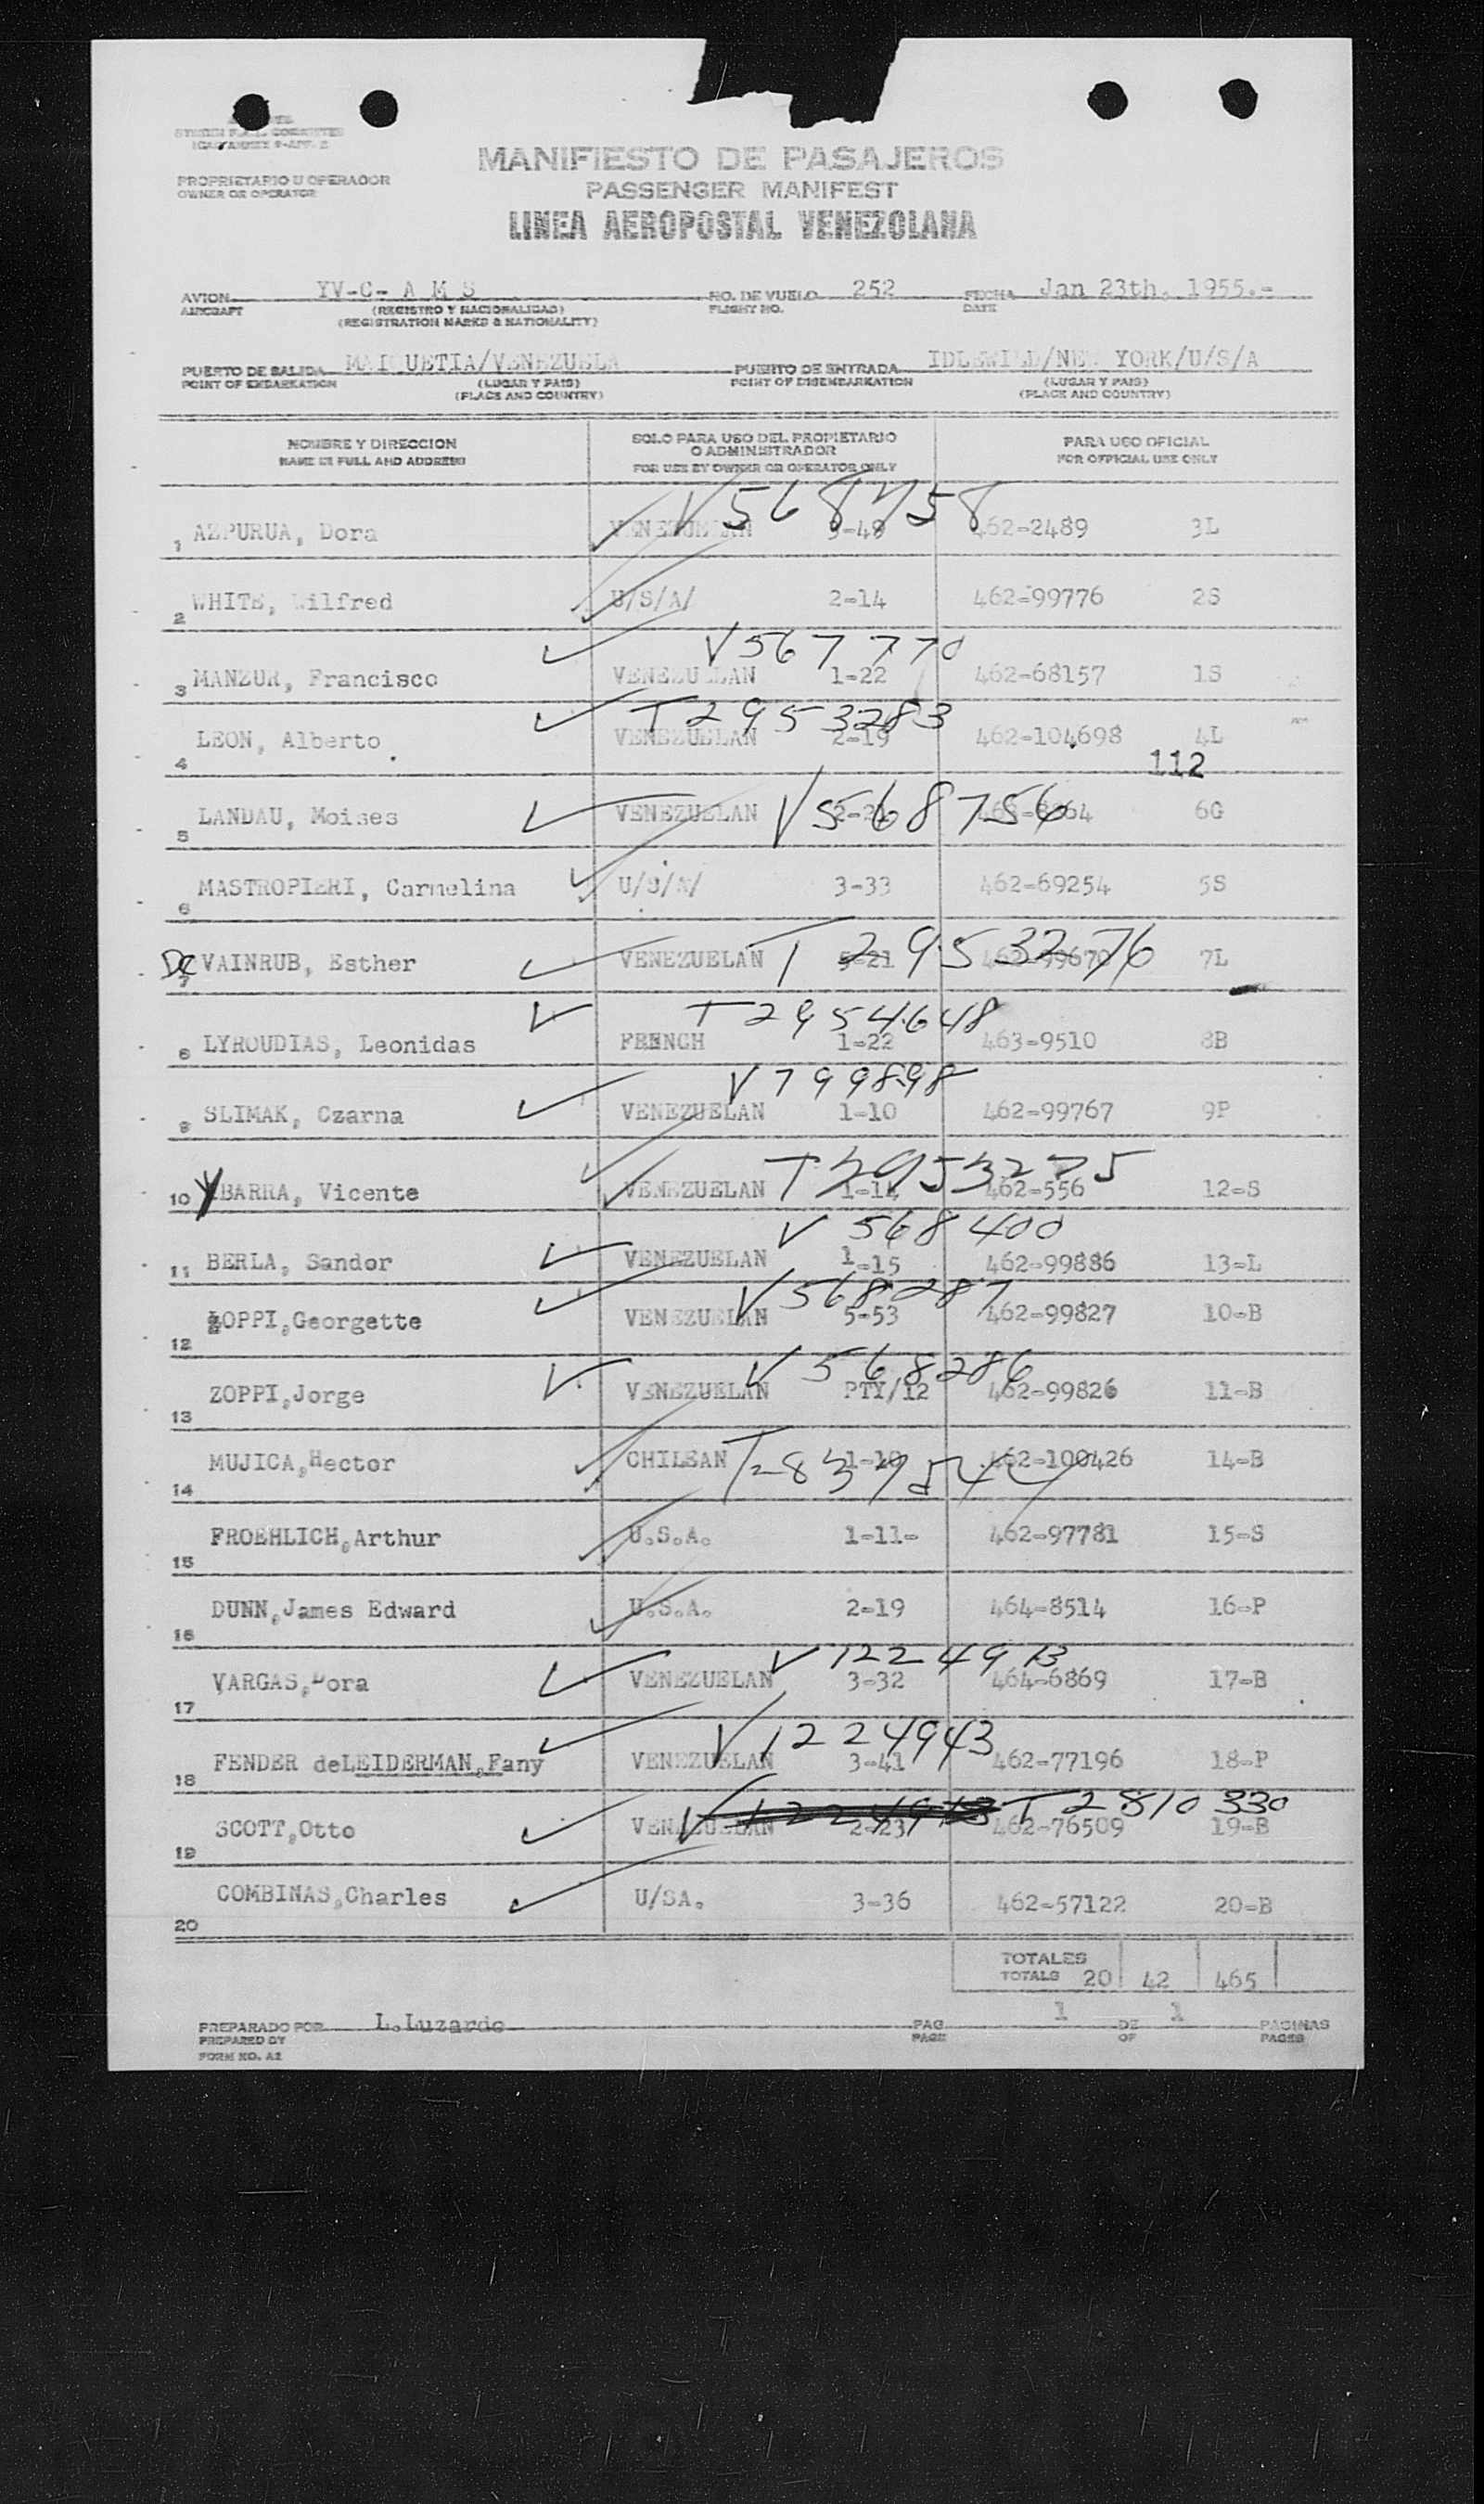 PROPRIETARIO U OPERADOR
OWNER OR OPERATOR
MANIFIESTO DE PASAJEROS
PASSENGER MANIFEST
LINEA AEROPOSTAL VENEZOLANA
AVION AIRCRAFT YV-C- A M S NO. DE VUELO FLIGHT NO. 252 FECHA DATE Jan 23th, 1955.-
(REGISTRO Y NACIONALIDAD)
(REGISTRATION MARKS & NATIONALITY)
PUERTO DE SALIDA MAIQUETIA/VENEZUELA PUERTO DE ENTRADA IDLEWILD/NEW YORK/U/S/A
POINT OF EMBARKATION (LUGAR Y PAIS) POINT OF DISEMBARKATION (LUGAR Y PAIS)
(PLACE AND COUNTRY) (PLACE AND COUNTRY)
NOMBRE Y DIRECCION SOLO PARA USO DEL PROPIETARIO O ADMINISTRADOR PARA USO OFICIAL
NAME IN FULL AND ADDRESS FOR USE BY OWNER OR OPERATOR ONLY FOR OFFICIAL USE ONLY
V568758
1 AZPURUA, Dora VENEZUELAN 462-2489 3L
2 WHITE, Wilfred U/S/A/ 2-14 462-99776 2S
V567770
3 MANZUR, Francisco VENEZUELAN 1-22 462-68157 1S
T2953283
4 LEON, Alberto VENEZUELAN 2-19 462-104698 4L
112
5 LANDAU, Moises VENEZUELAN V568756 6G
6 MASTROPIERI, Carmelina U/S/A/ 3-33 462-69254 5S
De 7 VAINRUB, Esther VENEZUELAN T2953276 7L
T2954648
8 LYROUDIAS, Leonidas FRENCH 1-22 463-9510 8B
V799898
9 SLIMAK, Czarna VENEZUELAN 1-10 462-99767 9P
T2953275
10 YBARRA, Vicente VENEZUELAN 1-14 462-556 12-S
V568400
11 BERLA, Sandor VENEZUELAN 1-15 462-99886 13-L
V568287
12 ZOPPI,Georgette VENEZUELAN 5-53 462-99827 10-B
V568286
13 ZOPPI,Jorge VENEZUELAN PTY/12 462-99826 11-B
14 MUJICA,Hector CHILEAN 462-100426 14-B
15 FROEHLICH,Arthur U.S.A. 1-11- 462-97781 15-S
16 DUNN,James Edward U.S.A. 2-19 464-8514 16-P
V1224913
17 VARGAS,Dora VENEZUELAN 3-32 464-6869 17-B
V1224943
18 FENDER deLEIDERMAN,Fany VENEZUELAN 3-41 462-77196 18-P
T2810330
19 SCOTT,Otto VENEZUELAN 2-23 462-76509 19-B
20 COMBINAS,Charles U/SA. 3-36 462-57122 20-B
TOTALES
TOTALS 20 42 465
PREPARADO POR L.Luzardo PAG 1 DE 1 PAGINAS
PREPARED BY PAGE OF PAGES
FORM NO. A2